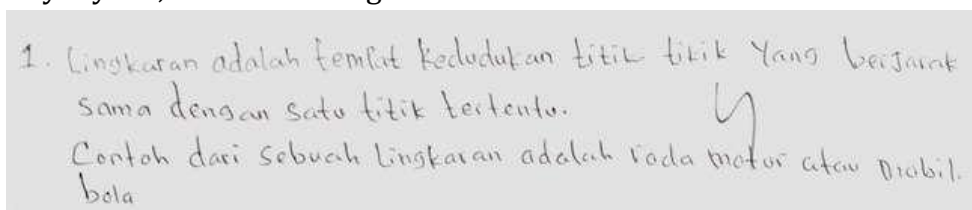 1. Lingkaran adalah tempat kedudukan titik titik Yang berjarak
sama dengan satu titik tertentu.
Contoh dari sebuah Lingkaran adalah roda motor atau
bola